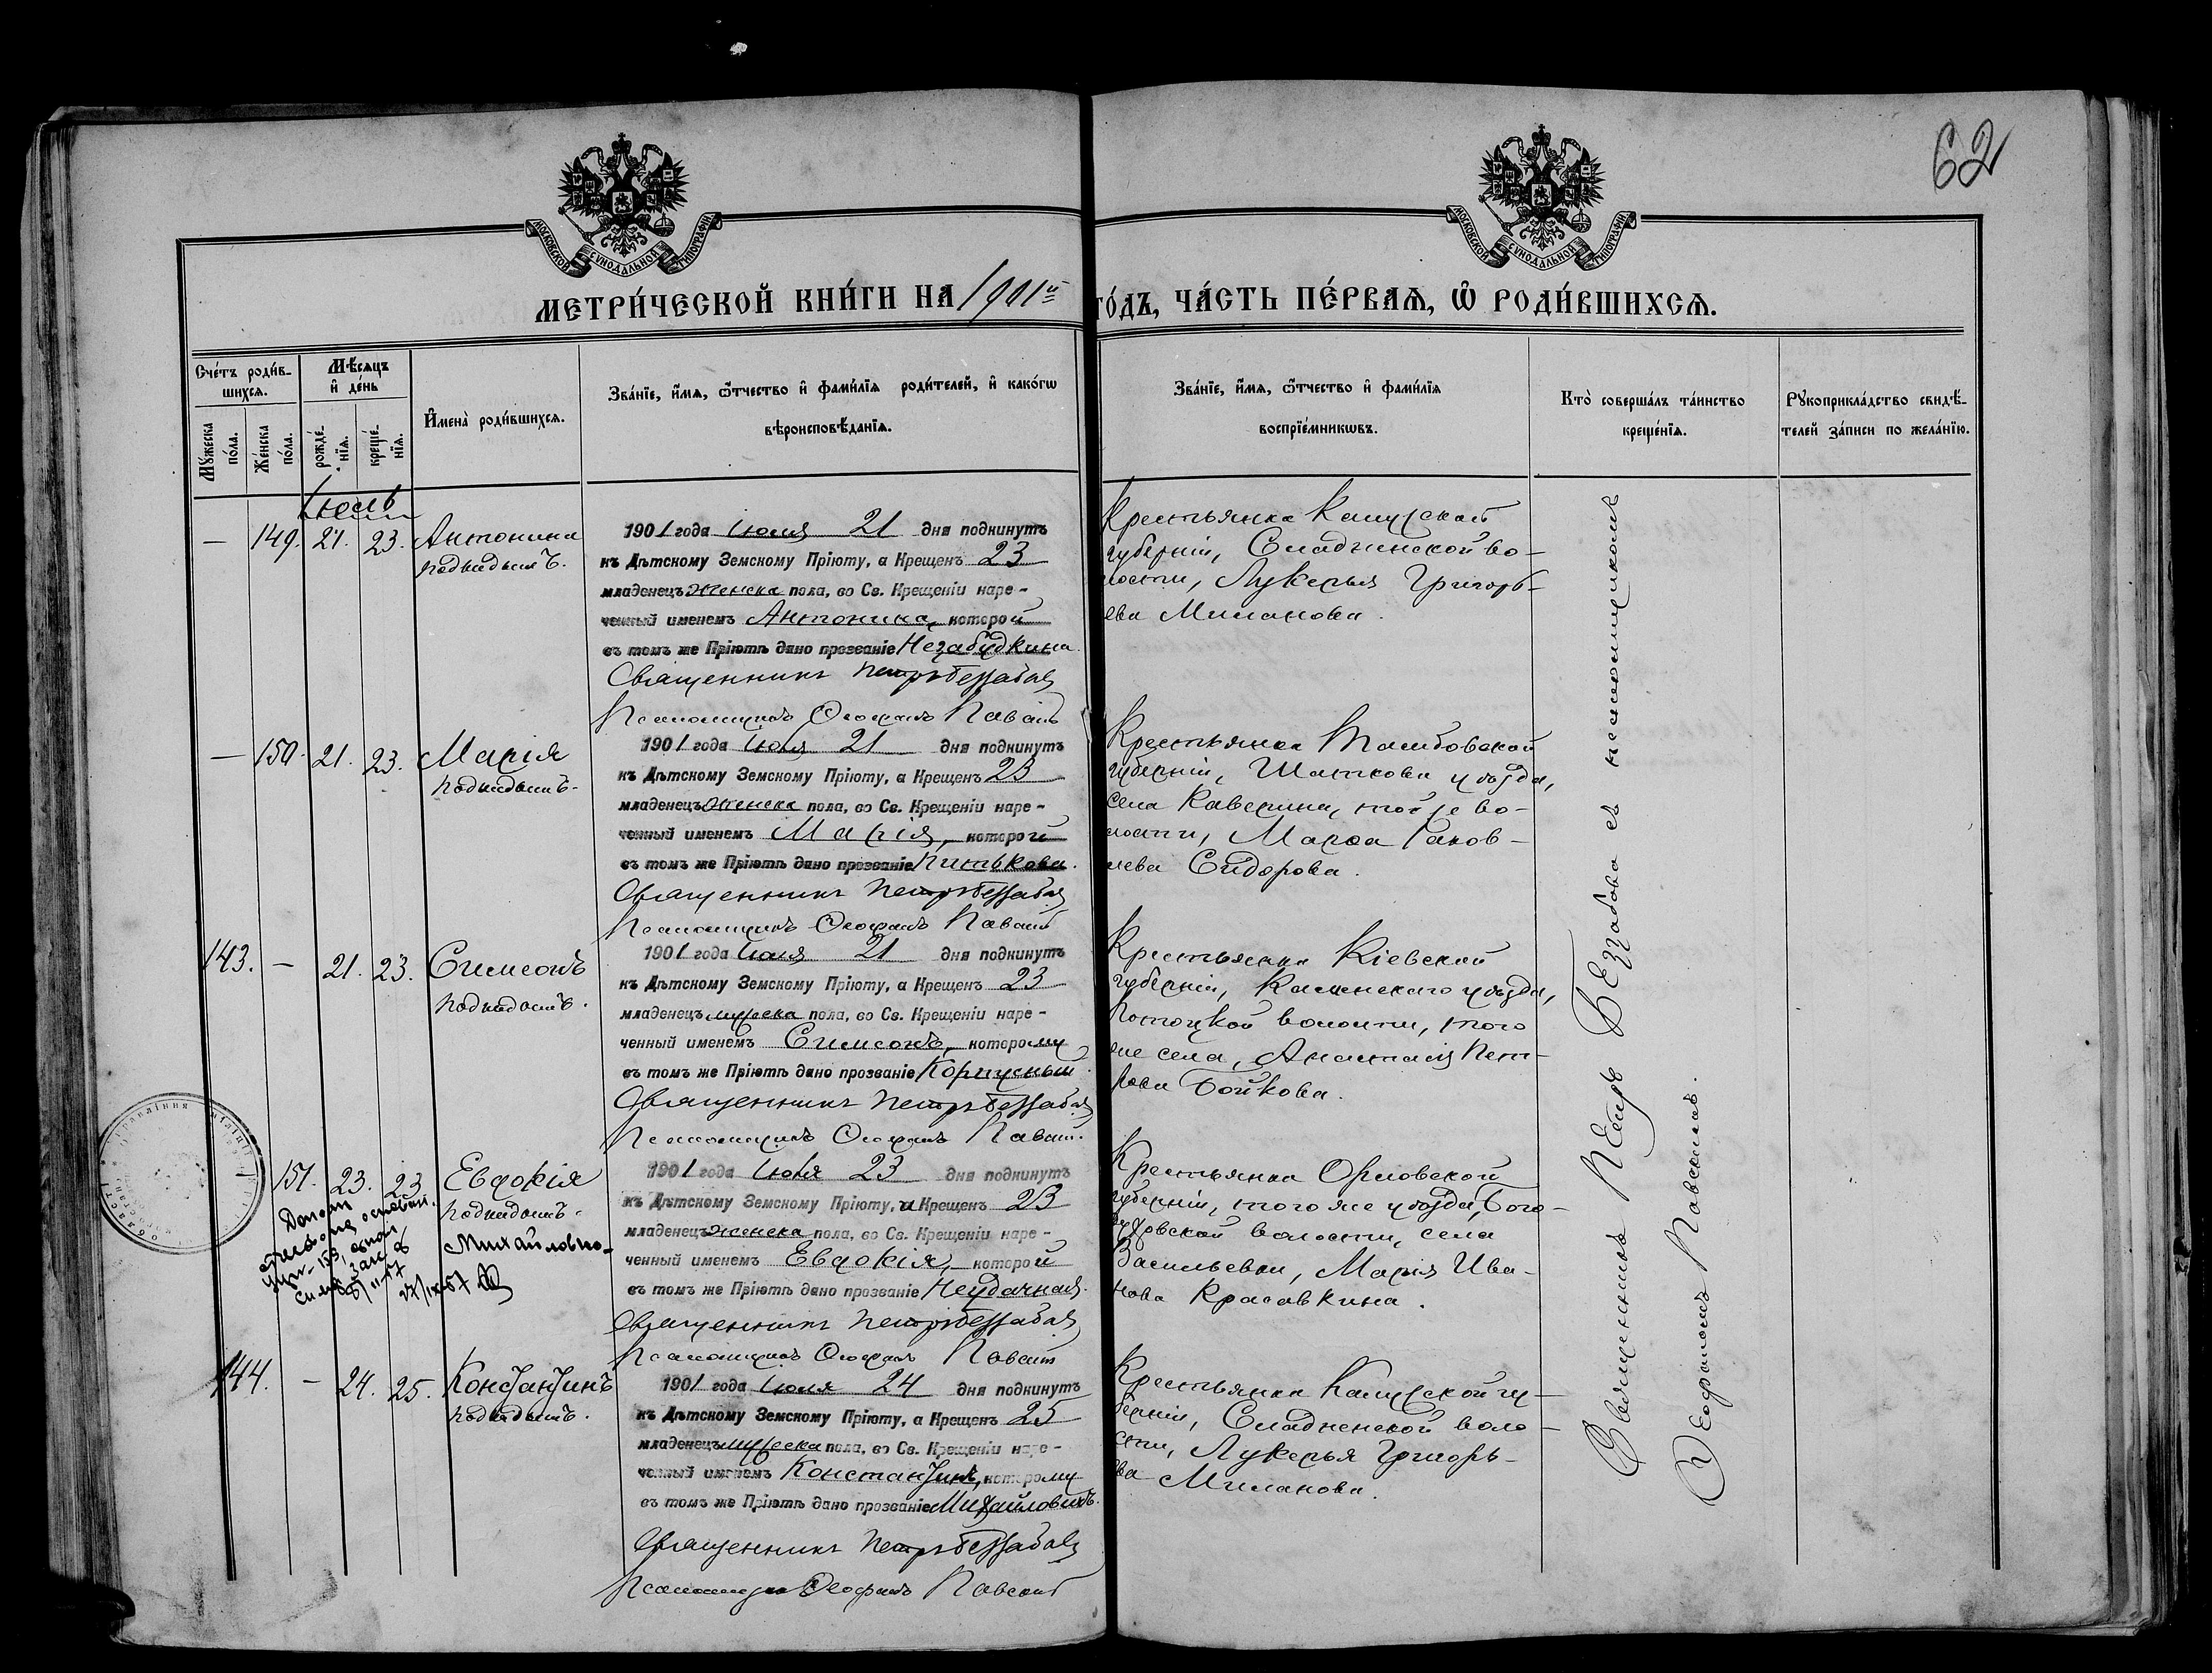 62
МОСКОВСКОЙ СУНОДАЛЬНОЙ ТИПОГРАФІИ
МОСКОВСКОЙ СУНОДАЛЬНОЙ ТИПОГРАФІИ
МЕТРИ́ЧЕСКОЙ КНИ́ГИ НА 1901й
ГО́ДЪ, ЧА́СТЬ ПЕ́РВАѦ, Ѿ РОДИ́ВШИХСѦ.
Сче́тъ роди́в-
шихсѧ.
Мѣ́сѧцъ
и҆ де́нь
Мꙋ́жеска
по́ла.
Же́нска
по́ла.
рожде́-
нїѧ.
креще́-
нїѧ.
И҆мена̀ роди́вшихсѧ.
Зва́нїе, и҆́мѧ, ѻ҆́тчество и҆ фами́лїѧ роди́телей, и҆ како́гѡ
вѣроисповѣ́данїѧ.
Зва́нїе, и҆́мѧ, ѻ҆́тчество и҆ фами́лїѧ
воспрїе́мникѡвъ.
Кто̀ соверша́лъ та́инство
креще́нїѧ.
Рꙋкоприкла́дство свидѣ́-
телей за́писи по жела́нїю.
Іюль
— 149. 21. 23. Антонина
подкидышъ.
1901 года Іюля 21 дня подкинутъ
къ Дѣтскому Земскому Пріюту, а Крещенъ 23
младенецъ женска пола, во Св. Крещеніи наре-
ченный именемъ Антонина, которой
въ томъ же Пріютѣ дано прозваніе Незабудкина.
Священникъ Петръ Беззабава
Псаломщикъ Ѳеофанъ Павскій
Крестьянка Калужской
губерніи, во-
лости, Лукерья Григорь-
ева Миланова.
— 150. 21. 23. Марія
подкидышъ.
1901 года Іюля 21 дня подкинутъ
къ Дѣтскому Земскому Пріюту, а Крещенъ 23
младенецъ женска пола, во Св. Крещеніи наре-
ченный именемъ Марія, которой
въ томъ же Пріютѣ дано прозваніе Питькова.
Священникъ Петръ Беззабава
Псаломщикъ Ѳеофанъ Павскій
Крестьянка Тамбовской
губерніи, Шатскова уѣзда,
села Каверина, той же во-
лости, Марѳа Яков-
лева Сидорова.
143. — 21. 23. Симеонъ
подкидышъ.
1901 года Іюля 21 дня подкинутъ
къ Дѣтскому Земскому Пріюту, а Крещенъ 23
младенецъ мужеска пола, во Св. Крещеніи наре-
ченный именемъ Симеонъ, которому
въ томъ же Пріютѣ дано прозваніе
Священникъ Петръ Беззабава
Псаломщикъ Ѳеофанъ Павскій
Крестьянка Кіевской
губерніи, уѣзда,
волости, того
же села, Анастасія Пет-
рова Бойкова.
151. 23. 23 Евдокія
подкидышъ.
Михайловна
1901 года Іюля 23 дня подкинутъ
къ Дѣтскому Земскому Пріюту, а Крещенъ 23
младенецъ женска пола, во Св. Крещеніи наре-
ченный именемъ Евдокія, которой
въ томъ же Пріютѣ дано прозваніе Неудачная.
Священникъ Петръ Беззабава
Псаломщикъ Ѳеофанъ Павскій
Крестьянка Орловской
губерніи, того же уѣзда, Бого-
волости, села
Васильевки, Марія Ива-
нова Красавкина.
144. — 24. 25. Константинъ
подкидышъ.
1901 года Іюля 24 дня подкинутъ
къ Дѣтскому Земскому Пріюту, а Крещенъ 25
младенецъ мужеска пола, во Св. Крещеніи наре-
ченный именемъ Константинъ, которому
въ томъ же Пріютѣ дано прозваніе Михайловичъ.
Священникъ Петръ Беззабава
Псаломщикъ Ѳеофанъ Павскій
Крестьянка Калужской гу-
берніи, воло-
сти, Лукерья Григорь-
ева Миланова.
Священникъ Петръ Беззабава съ псаломщикомъ
Ѳеофаномъ Павскимъ.